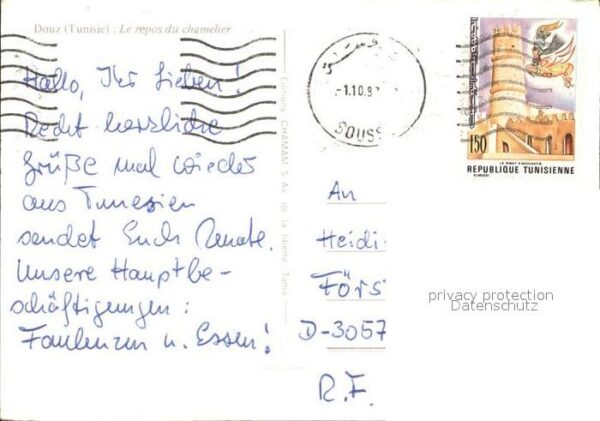 Douz (Tunisie) : Le repos du chamelier
Hallo, Ihr Lieben!
Recht herzliche
Grüße mal wieder
aus Tunesien
sendet Euch Renate.
Unsere Hauptbe-
schäftigungen:
Faulenzen u. Essen!
Editions CHAMAM 5 Av. de la liberté, Tunis
-1.10.8
SOUSS
150
LE RIBAT A MONASTIR
REPUBLIQUE TUNISIENNE
An
Heidi
Förs
D-3057
R.F.
privacy protection
Datenschutz